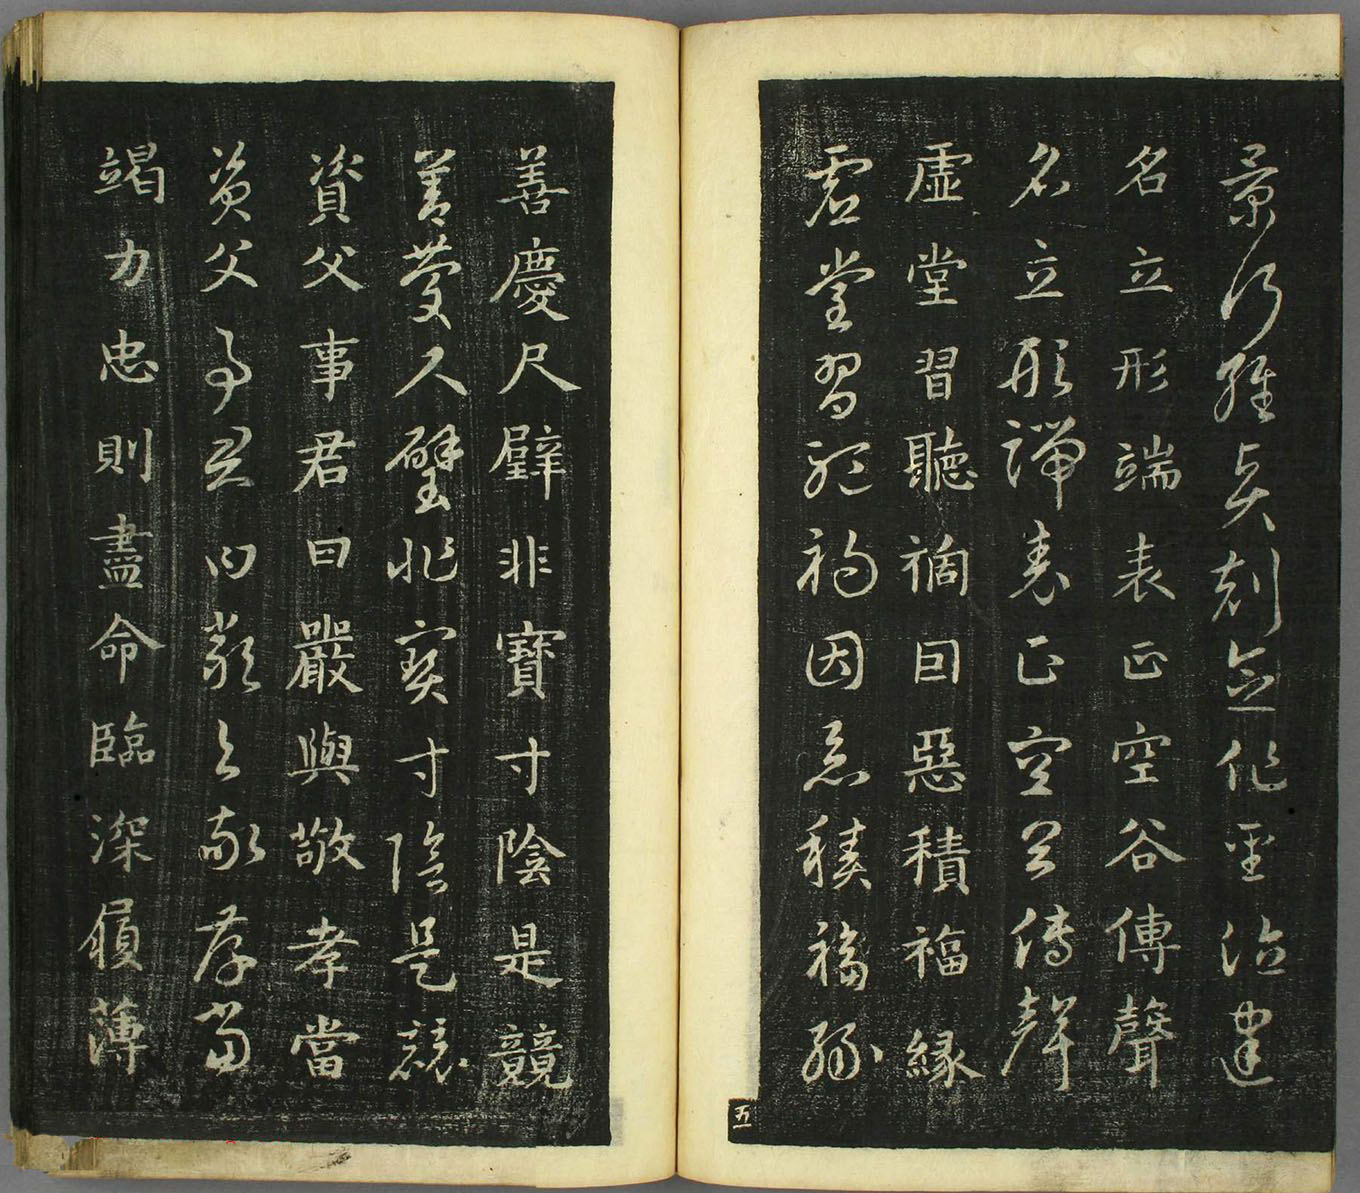 景行維賢剋念作聖德建
名立形端表正空谷傳聲
名立形端表正空谷傳聲
虛堂習聽禍囙惡積福緣
虛堂習聽禍因惡積福緣
五
善慶尺璧非寶寸陰是競
善慶尺璧非寶寸陰是競
資父事君曰嚴與敬孝當
資父事君曰嚴與敬孝當
竭力忠則盡命臨深履薄